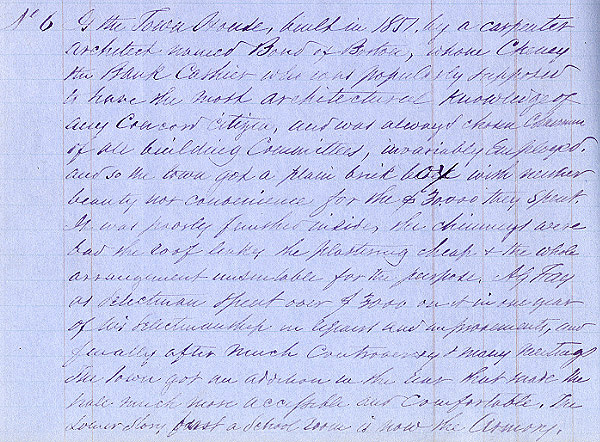 No 6 Is the Town House, built in 1851, by a carpenter
architect named Bond of Boston, whome Cheney
the Bank Cashier who was popularly supposed
to have the most architectural knowledge of
any Concord Citizen, and was always chosen Chairman
of all building Committees, invariably Employed.
and so the town got a plain brick box with neither
beauty nor convenience for the $30000 they spent.
It was poorly finished inside, the chimneys were
bad the roof leaky the plastering cheap & the whole
arrangement unsuitable for the purpose. A G Fay
as Selectman spent over $3000 on it in one year
of his selectmanship in repairs and improvements, and
finally after much controversy & many meetings
the town got an addition in the rear that made the
hall much more accessible and comfortable. The
Lower Story, a School room is now the Armory.